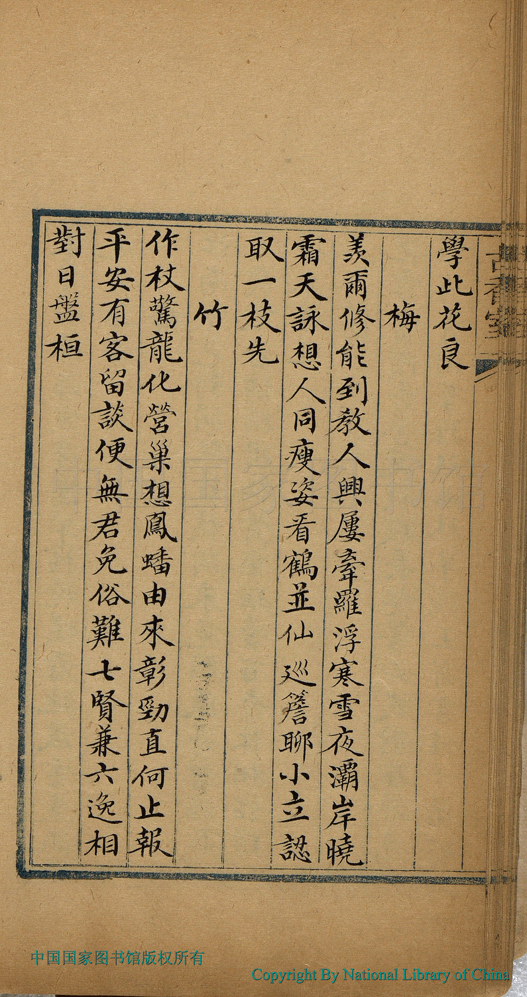 學此花良
梅
羨爾修能到教人興屢牽羅浮寒雪夜灞岸曉
霜天詠想人同瘦姿看鶴並仙巡簷聊小立認
取一枝先
竹
作杖驚龍化營巢想鳳蟠由來彰勁直何止報
平安有客留談便無君免俗難七賢兼六逸相
對日盤桓
中国国家图书馆版权所有
Copyright By National Library of China